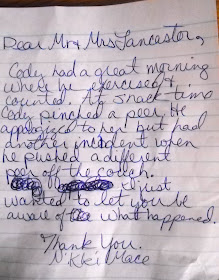 Dear Mr & Mrs Lancaster,
Cody had a great morning
where he exercised &
counted. At snack time
Cody pinched a peer. He
apologize to her but had
another incident when
he pushed a different
peer off the couch.
I just
wanted to let you be
aware of what happened.
Thank You.
Nikki Mace